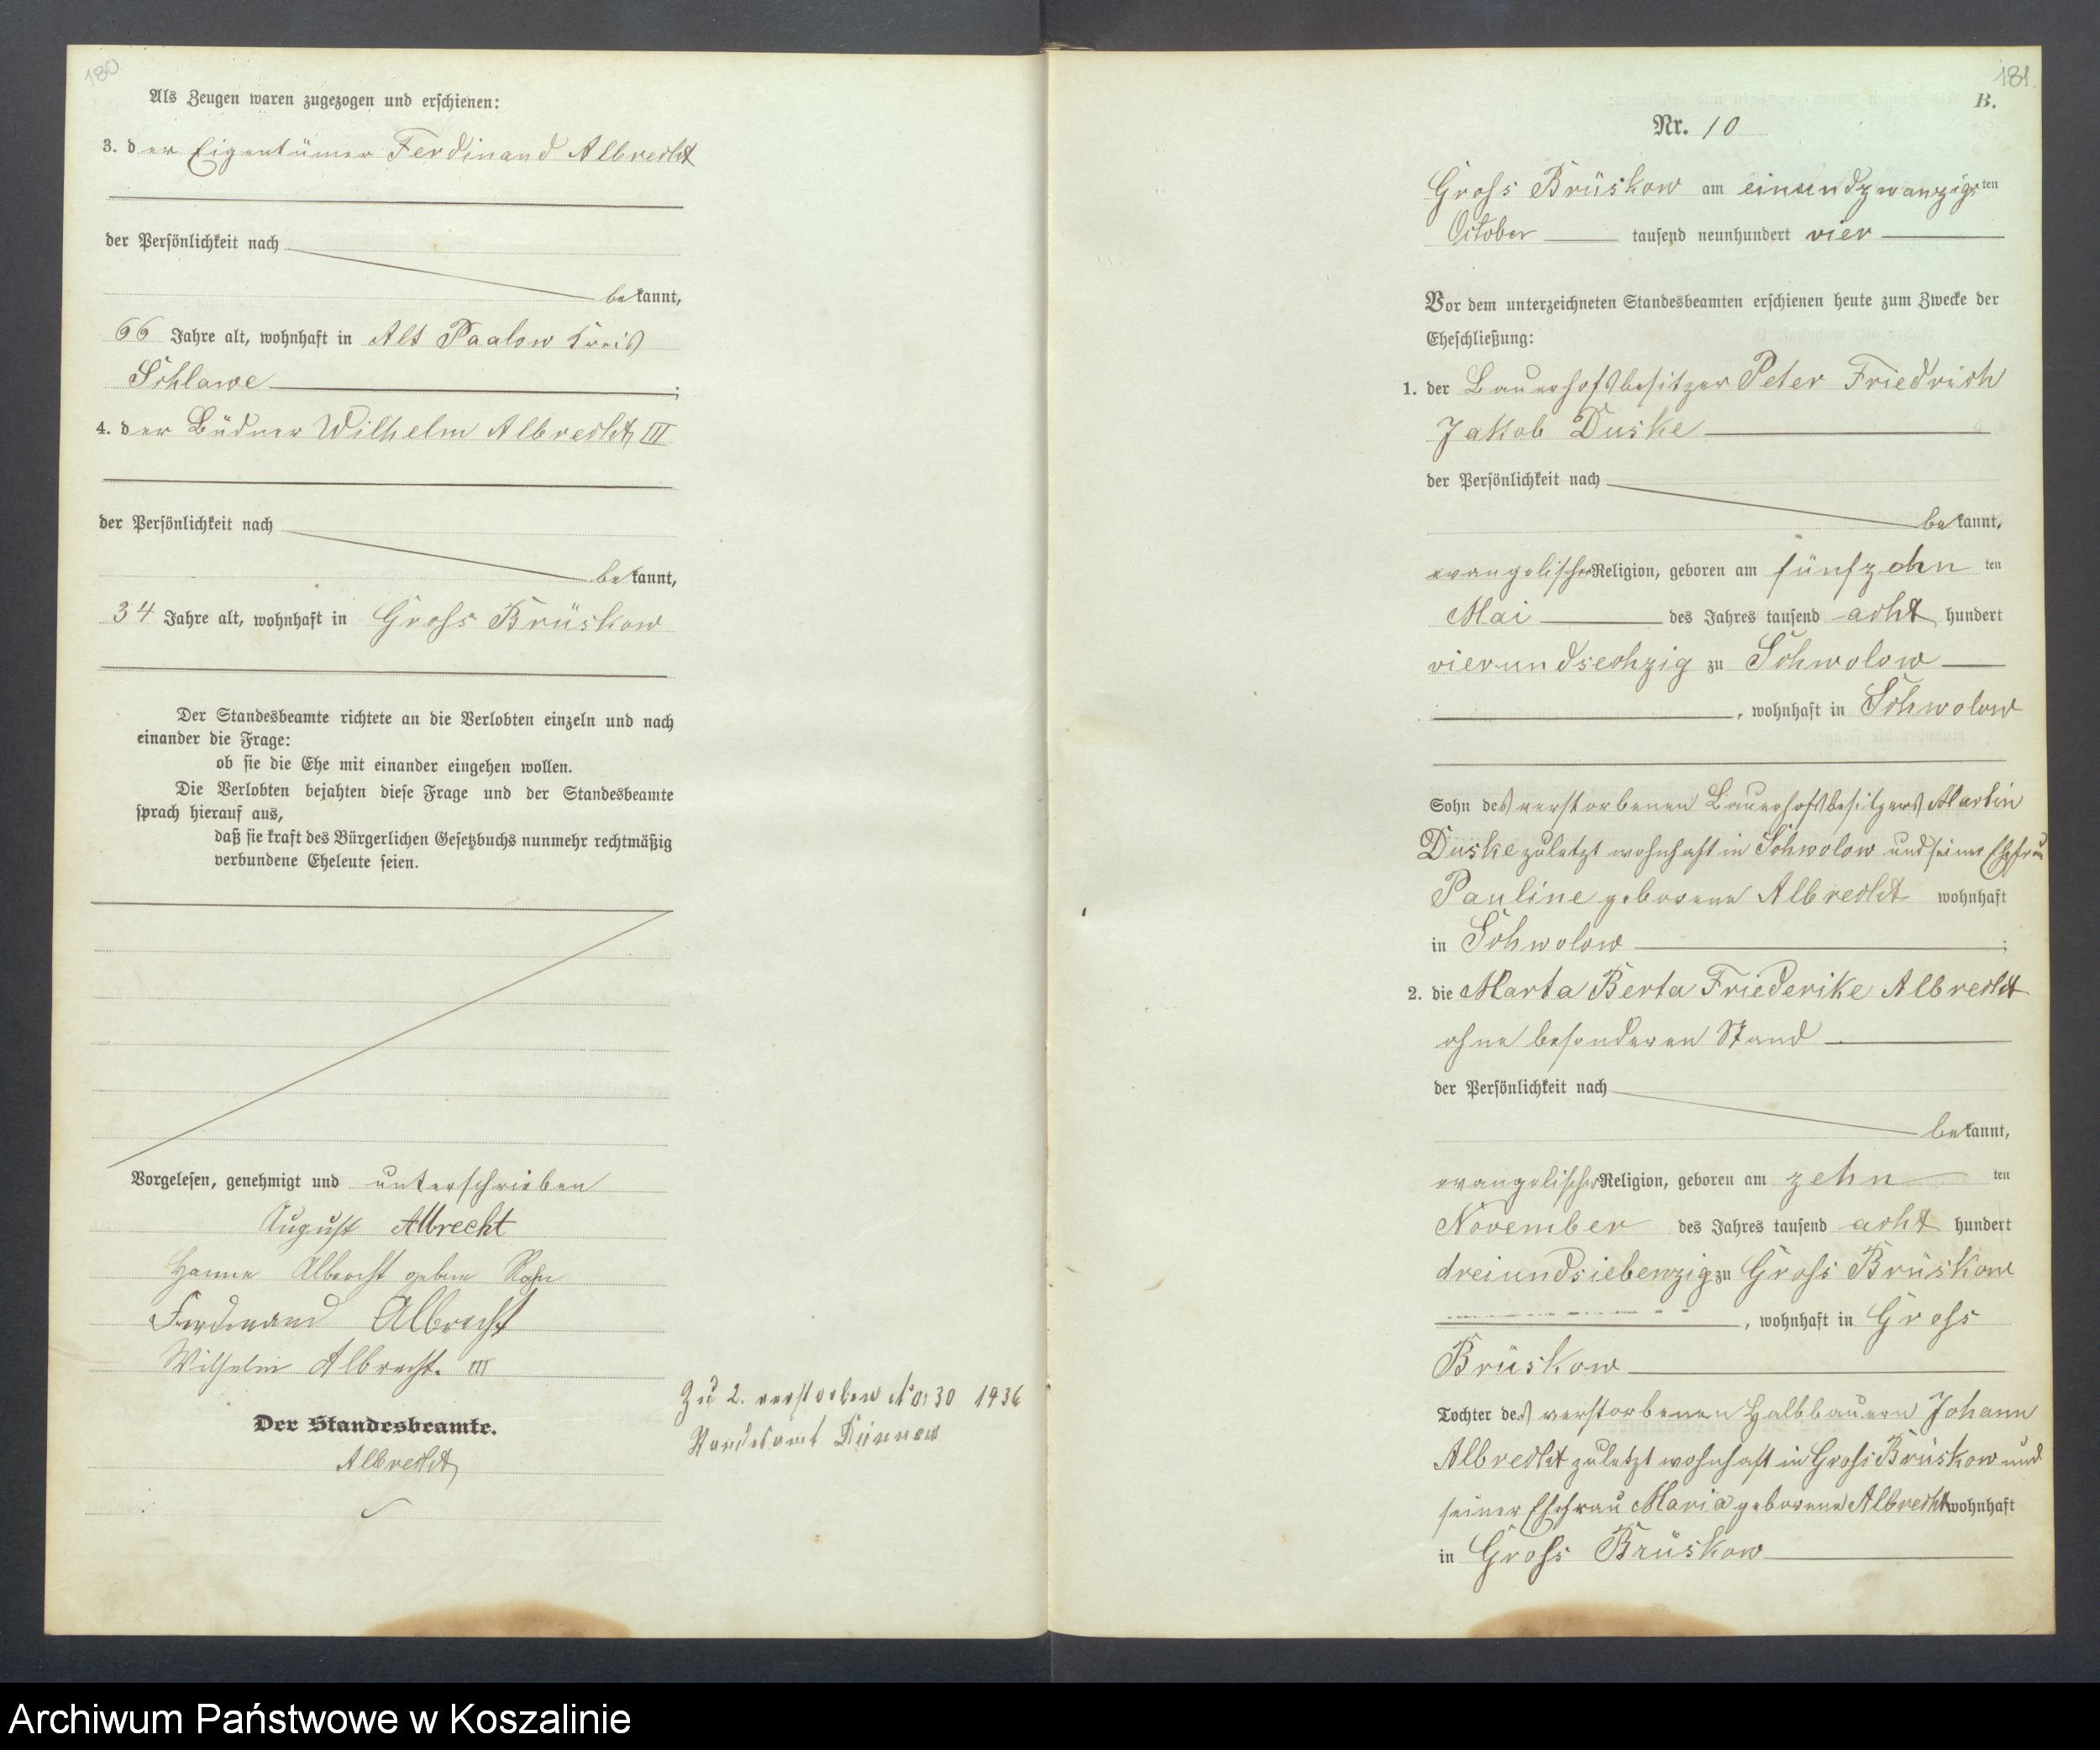 180
Als Zeugen waren zugezogen und erschienen:
3. der Eigentümer Ferdinand Albrecht
der Persönlichkeit nach
bekannt,
66 Jahre alt, wohnhaft in Alt Paalow Kreis
Schlawe ;
4. der Büdner Wilhelm Albrecht III
der Persönlichkeit nach
bekannt,
34 Jahre alt, wohnhaft in Gross Brüskow
Der Standesbeamte richtete an die Verlobten einzeln und nach
einander die Frage:
ob sie die Ehe mit einander eingehen wollen.
Die Verlobten bejahten diese Frage und der Standesbeamte
sprach hierauf aus,
daß sie kraft des Bürgerlichen Gesetzbuchs nunmehr rechtmäßig
verbundene Eheleute seien.
Vorgelesen, genehmigt und unterschrieben
August Albrecht
Hanne Albrecht geborne
Ferdinand Albrecht
Wilhelm Albrecht. III
Der Standesbeamte.
Albrecht
Zu 2. verstorben No. 30 1936
Standesamt Dünnow
181.
B.
Nr. 10
Gross Brüskow am einundzwanzigsten
October tausend neunhundert vier
Vor dem unterzeichneten Standesbeamten erschienen heute zum Zwecke der
Eheschließung:
1. der Bauerhofsbesitzer Peter Friedrich
Jakob Duske
der Persönlichkeit nach
bekannt,
evangelischer Religion, geboren am fünfzehn ten
Mai des Jahres tausend acht hundert
vierundsechzig zu Schwolow
, wohnhaft in Schwolow
Sohn des verstorbenen Bauerhofsbesitzers Martin
Duske zuletzt wohnhaft in Schwolow und seiner Ehefrau
Pauline geborene Albrecht wohnhaft
in Schwolow ;
2. die Marta Berta Friederike Albrecht
ohne besonderen Stand
der Persönlichkeit nach
bekannt,
evangelischer Religion, geboren am zehn ten
November des Jahres tausend acht hundert
dreiundsiebenzig zu Gross Brüskow
, wohnhaft in Gross
Brüskow
Tochter des verstorbenen Halbbauern Johann
Albrecht zuletzt wohnhaft in Gross Brüskow und
seiner Ehefrau Maria geborene Albrecht wohnhaft
in Gross Brüskow
Archiwum Państwowe w Koszalinie